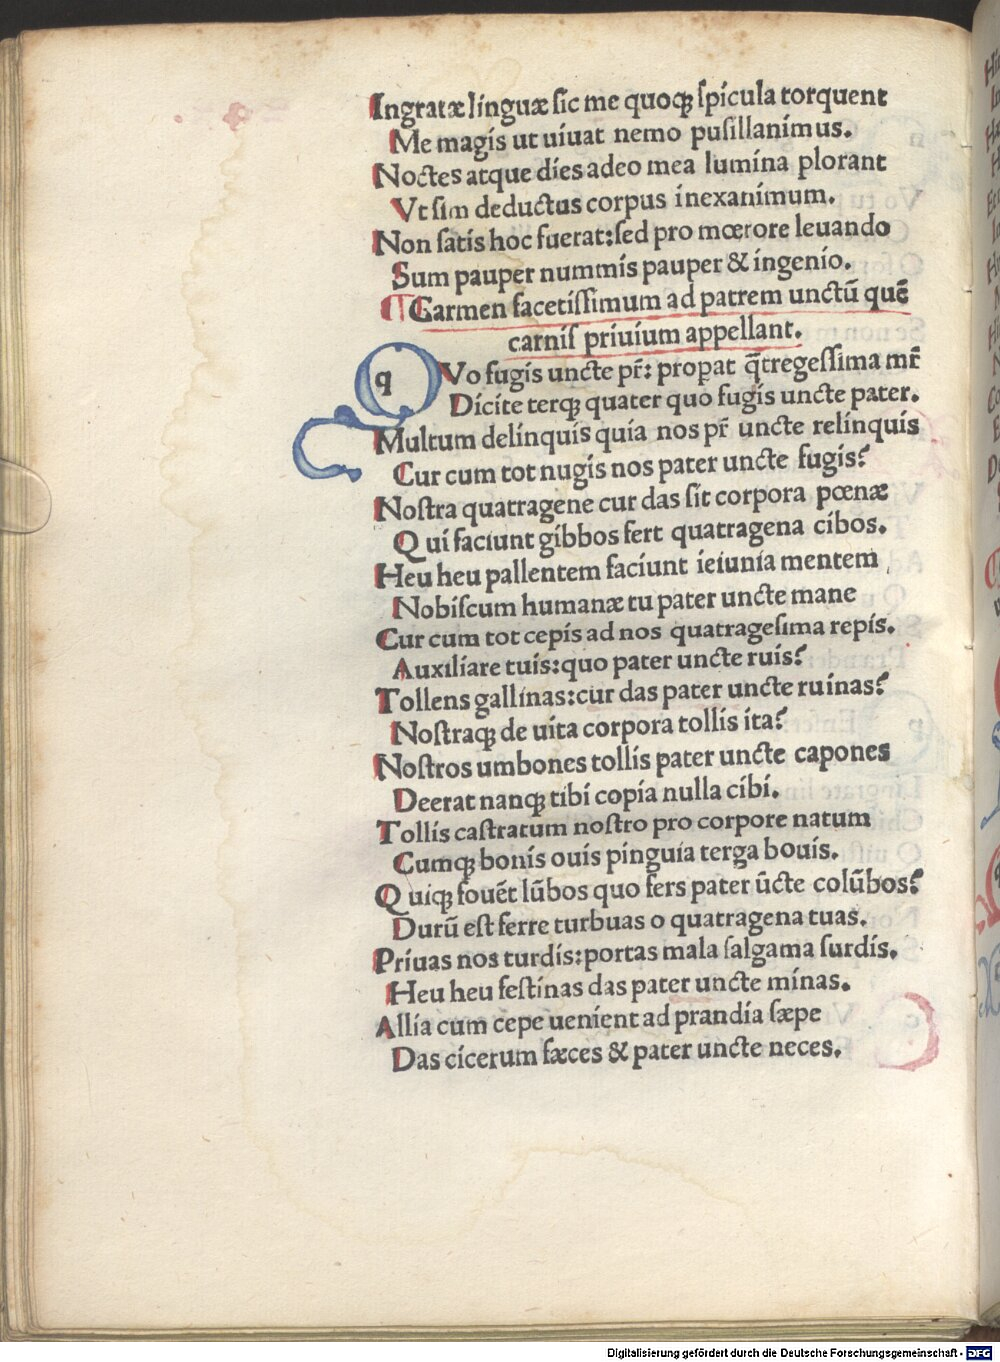 Ingratæ linguæ sic me quoqꝫ spicula torquent
Me magis ut uiuat nemo pusillanimus.
Noctes atque dies adeo mea lumina plorant
Vt sim deductus corpus inexanimum.
Non satis hoc fuerat: sed pro mœrore leuando
Sum pauper nummis pauper & ingenio.
Carmen facetissimum ad patrem unctū quē
carnis priuium appellant.
qVo fugis uncte pr̄: propat q̄tregessima mr̄
Dicite terqꝫ quater quo fugis uncte pater.
Multum delinquis quia nos pr̄ uncte relinquis
Cur cum tot nugis nos pater uncte fugis?
Nostra quatragene cur das sit corpora pœnæ
Qui faciunt gibbos fert quatragena cibos.
Heu heu pallentem faciunt ieiunia mentem
Nobiscum humanæ tu pater uncte mane
Cur cum tot cepis ad nos quatragesima repis.
Auxiliare tuis: quo pater uncte ruis?
Tollens gallinas: cur das pater uncte ruinas?
Nostraqꝫ de uita corpora tollis ita?
Nostros umbones tollis pater uncte capones
Deerat nanqꝫ tibi copia nulla cibi.
Tollis castratum nostro pro corpore natum
Cumqꝫ bonis ouis pinguia terga bouis.
Quiqꝫ fouēt lūbos quo fers pater ūcte colūbos?
Durū est ferre turbuas o quatragena tuas.
Priuas nos turdis: portas mala salgama surdis.
Heu heu festinas das pater uncte minas.
Allia cum cepe uenient ad prandia sæpe
Das cicerum fæces & pater uncte neces.
Digitalisierung gefördert durch die Deutsche Forschungsgemeinschaft - DFG